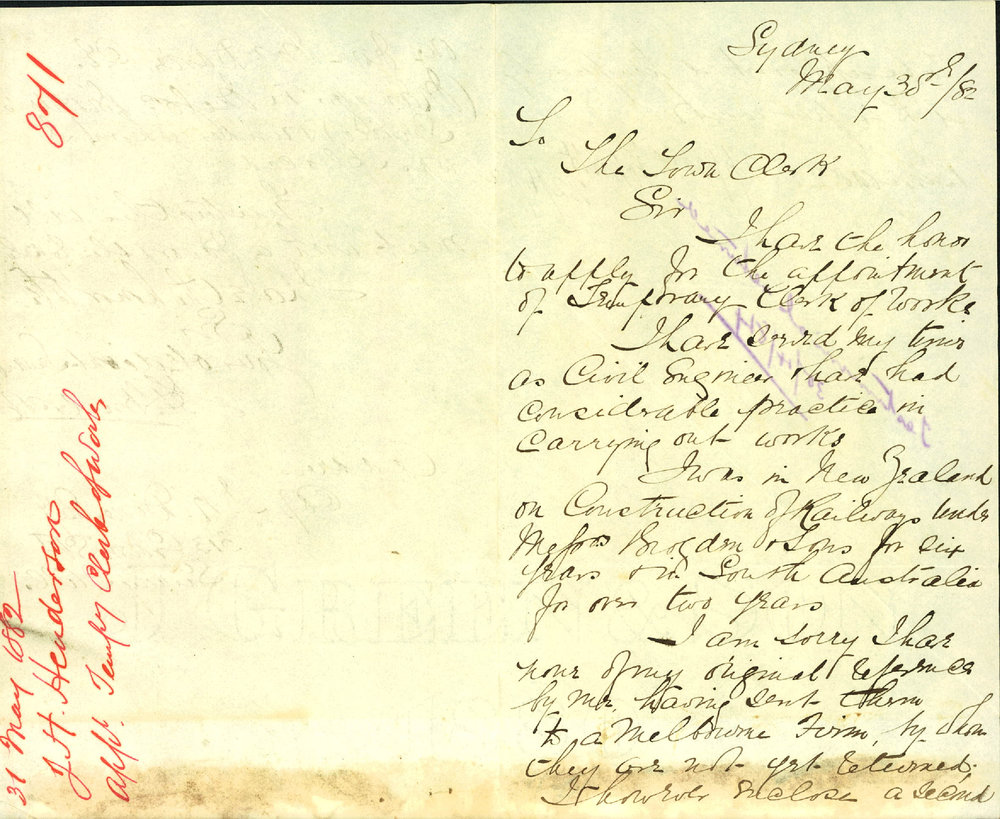 871
31 May 1882
J. H. Henderson
appt. Tempy Clerk of Works
Sydney
May 30th/82
To
The Town Clerk
Sir I have the honor
to apply for the appointment
of Temporary Clerk of Works
I have served my time
as Civil Engineer & have had
considerable practice in
carrying out works
I was in New Zealand
on Construction of Railways under
Messrs Brogden & Sons for six
years & in South Australia
for over two years
I am sorry I have
none of my original references
by me, having sent them
to a Melbourne Firm, by whom
they are not yet returned.
I however enclose a second